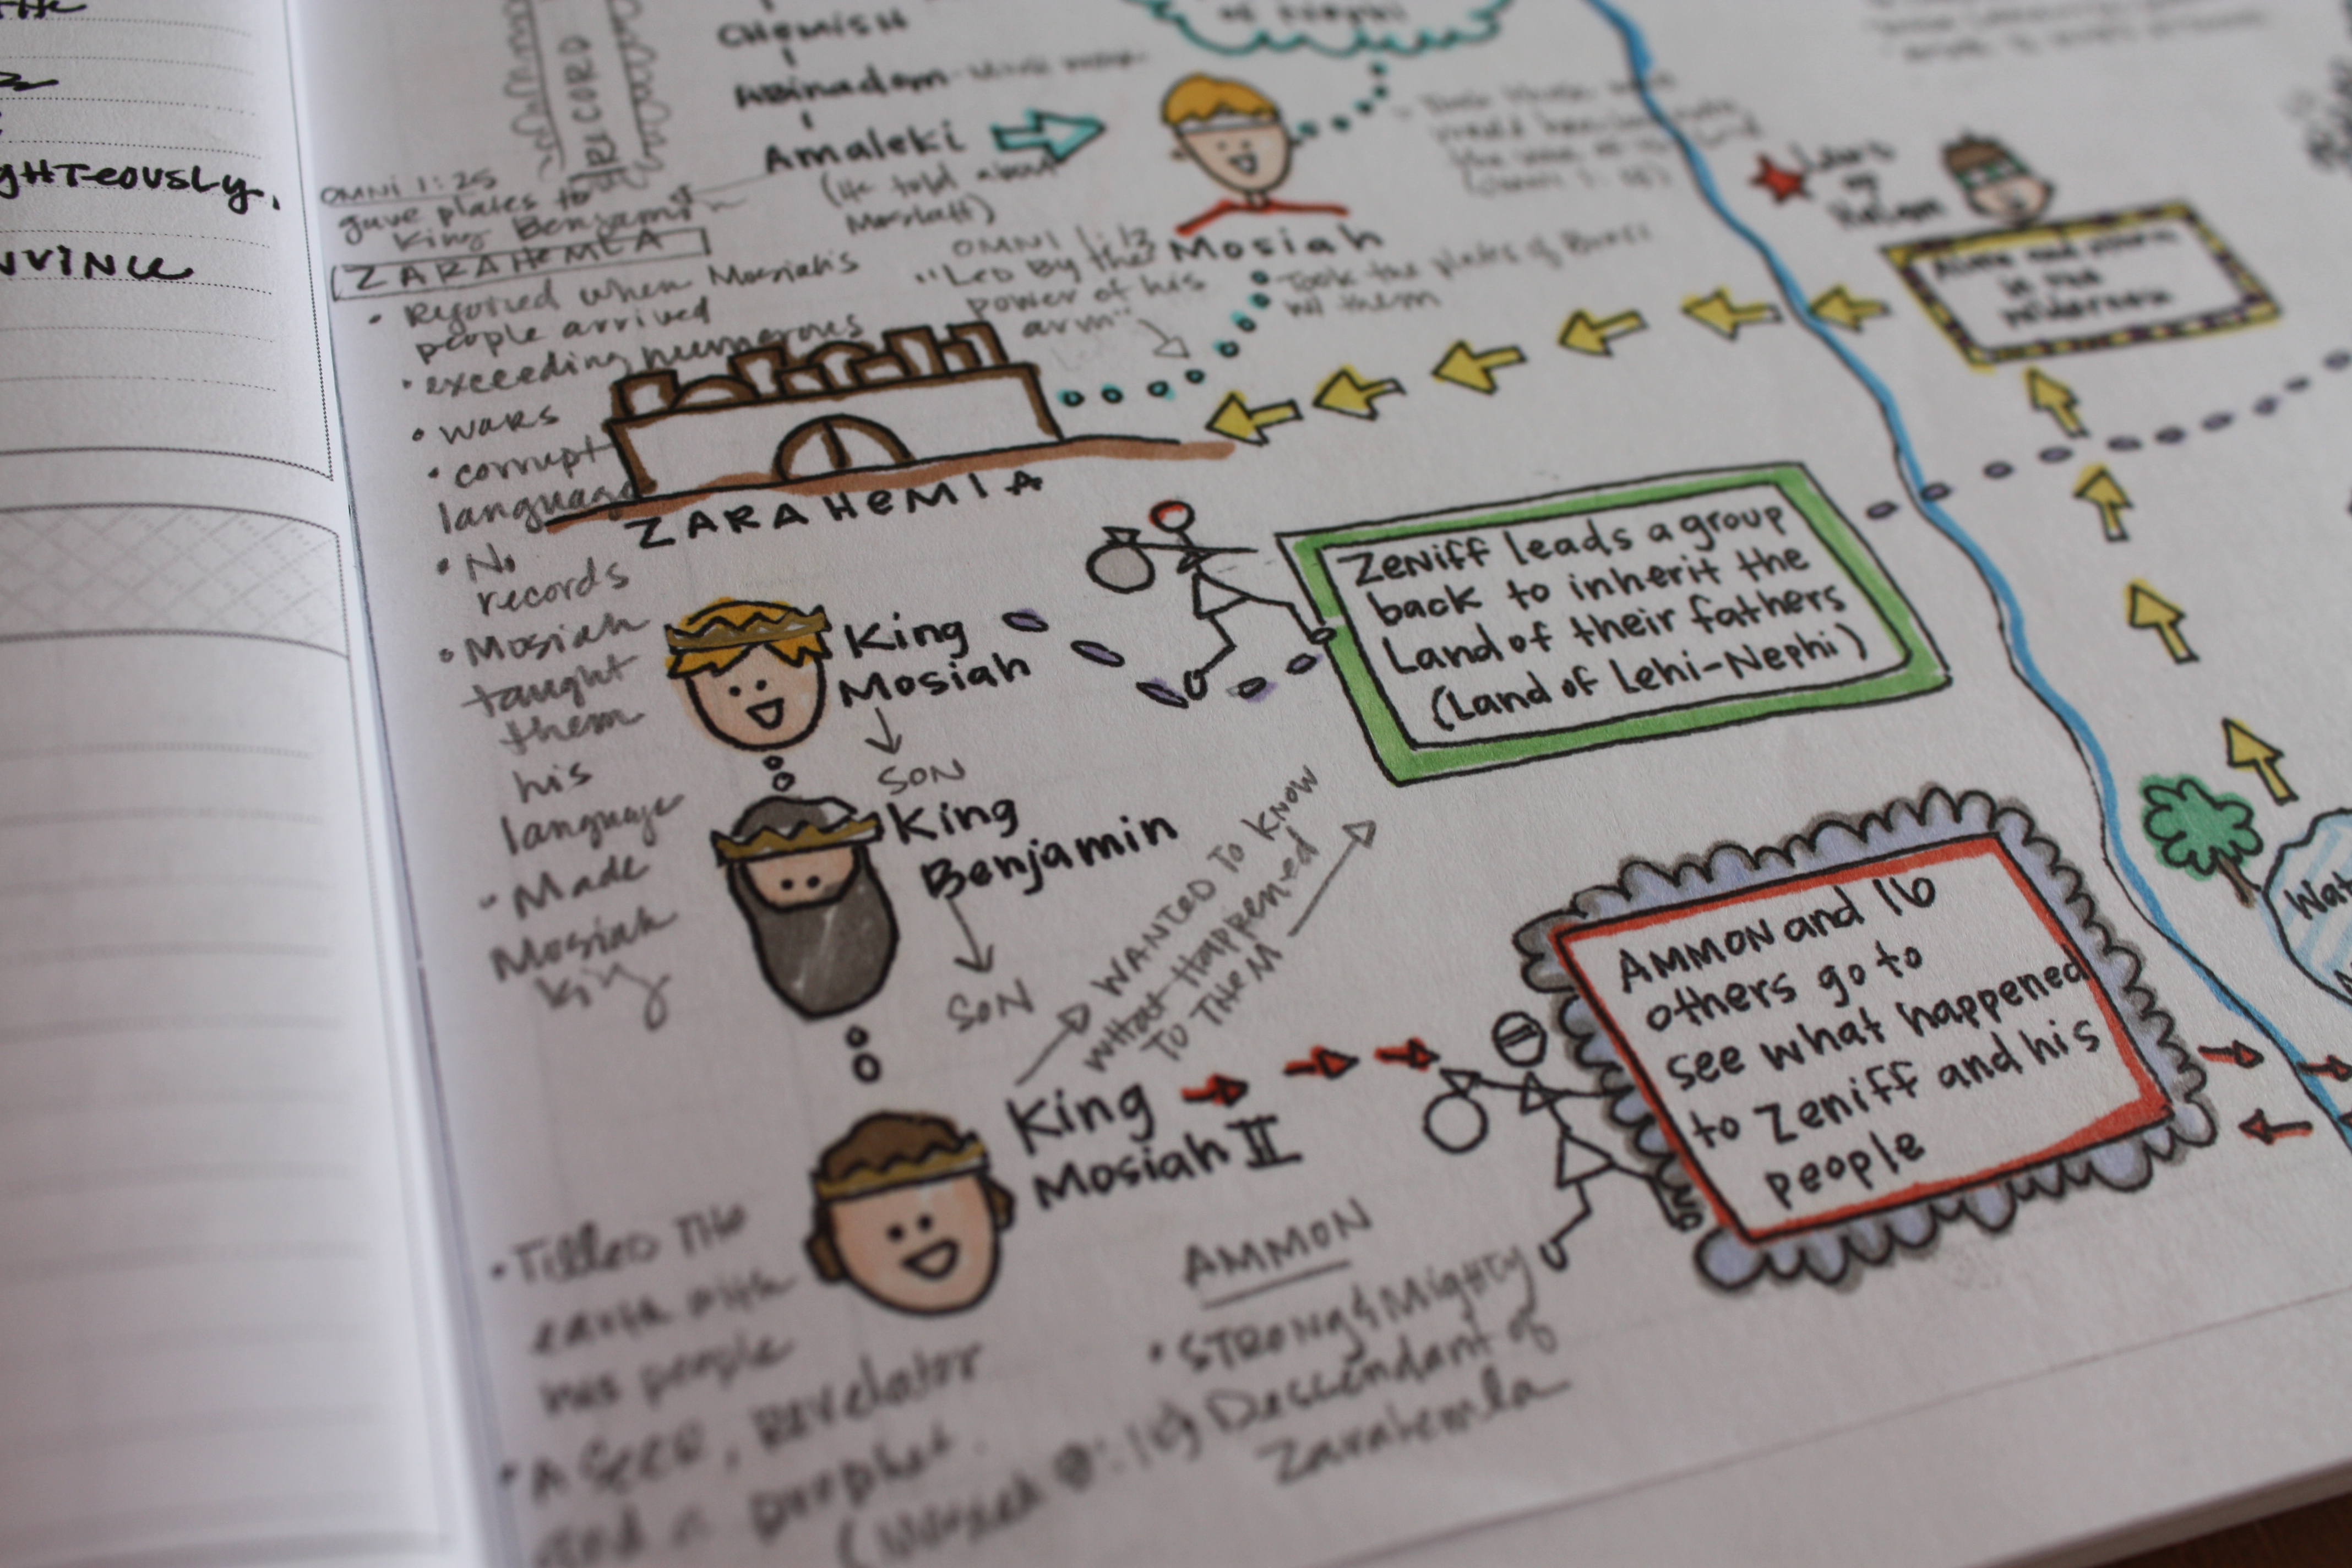 GHTEOUSLY.
RECORD
Chemish
Abinadom
Amaleki
(He told about
Mosiah)
OMNI 1:25
gave plates to
King Benjamin
ZARAHEMLA
• Rejoiced when Mosiah's
people arrived
• exceeding numerous
• WARS
• corrupt
language
• No
records
• Mosiah
taught
them
his
language
• Made
Mosiah
King
of Nephi
Mosiah
OMNI 1:13
"LED BY the
power of his
arm"
Took the plates of Brass
w/ them
in the
wilderness
ZARAHEMLA
Zeniff leads a group
back to inherit the
Land of their fathers
(Land of Lehi-Nephi)
King
Mosiah
SON
King
Benjamin
SON
WANTED To KNOW
what happened
To THEM
King
Mosiah II
AMMON and 16
others go to
see what happened
to Zeniff and his
people
• Tilled The
earth with
his people
• A Seer, Revelator
and a prophet.
AMMON
• STRONG & Mighty
Descendant of
Zarahemla